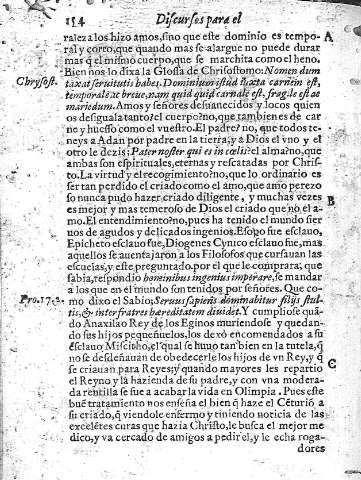 154 Discursos para el
raleza los hizo amos, sino que este dominio es tempo- A
ral y corto, que quando mas se alargue no puede durar
mas q̃ el mismo cuerpo, que se marchita como el heno.
Bien nos lo dixo la Glossa de Chrisostomo: Nomen dum
Chrysost. taxat seruitutis habes, Dominium istud iuxta carnem est,
temporale ac breue, nam quid quid carnale est, fragile est ac
Amos y señores desuanecidos y locos quien
os desiguala tanto? el cuerpo? no, que tambien es de car
ne y huesso como el vuestro. El padre? no, que todos te-
neys a Adan por padre en la tierra; y a Dios el vno y el
otro le dezis: Pater noster qui es in cœlis? el alma? no, que
ambas son espirituales, eternas y rescatadas por Chris-
to. La virtud y el recogimiento? no, que lo ordinario es
ser tan perdido el criado como el amo, que amo perezo
so nunca pudo hazer criado diligente, y muchas vezes B
es mejor y mas temeroso de Dios el criado que no el a-
mo. El entendimiento? no, pues ha tenido el mundo sier
uos de agudos y delicados ingenios. Esopo fue esclauo,
Epicheto esclauo fue, Diogenes Cynico esclauo fue, mas
aquellos se auentajaron a los Filosofos que cursauan las
escuelas, y este preguntado, por el que le compraua; que
sabia, respondio hominibus ingenuis imperare, se mandar
a los que en el mundo son tenidos por señores. Que co-
Pro. 17. mo dixo el Sabio; Seruus sapiens dominabitur filijs stul-
tis, & inter fratres hæreditatem diuidet. Y cumpliose quã-
do Anaxilao Rey de los Eginos muriendose y quedan-
do sus hijos pequeñuelos, los dexó encomendados a su
esclauo Miscitho, el qual se huuo tan bien en la tutela, q̃
no se desdeñauan de obedecerle los hijos de vn Rey, y q̃
se criauan para Reyes; y quando mayores les repartio C
el Reyno y la hazienda de su padre, y con vna modera-
da rentilla se fue a acabar la vida en Olimpia. Pues este
buẽ tratamiento nos enseña el bien q̃ haze el Cẽturiõ a
su criado, q̃ viendole enfermo y tiniendo noticia de las
excelẽtes curas que hazia Christo, le busca el mejor me
dico, y va cercado de amigos a pedirel, y le echa roga-
dores